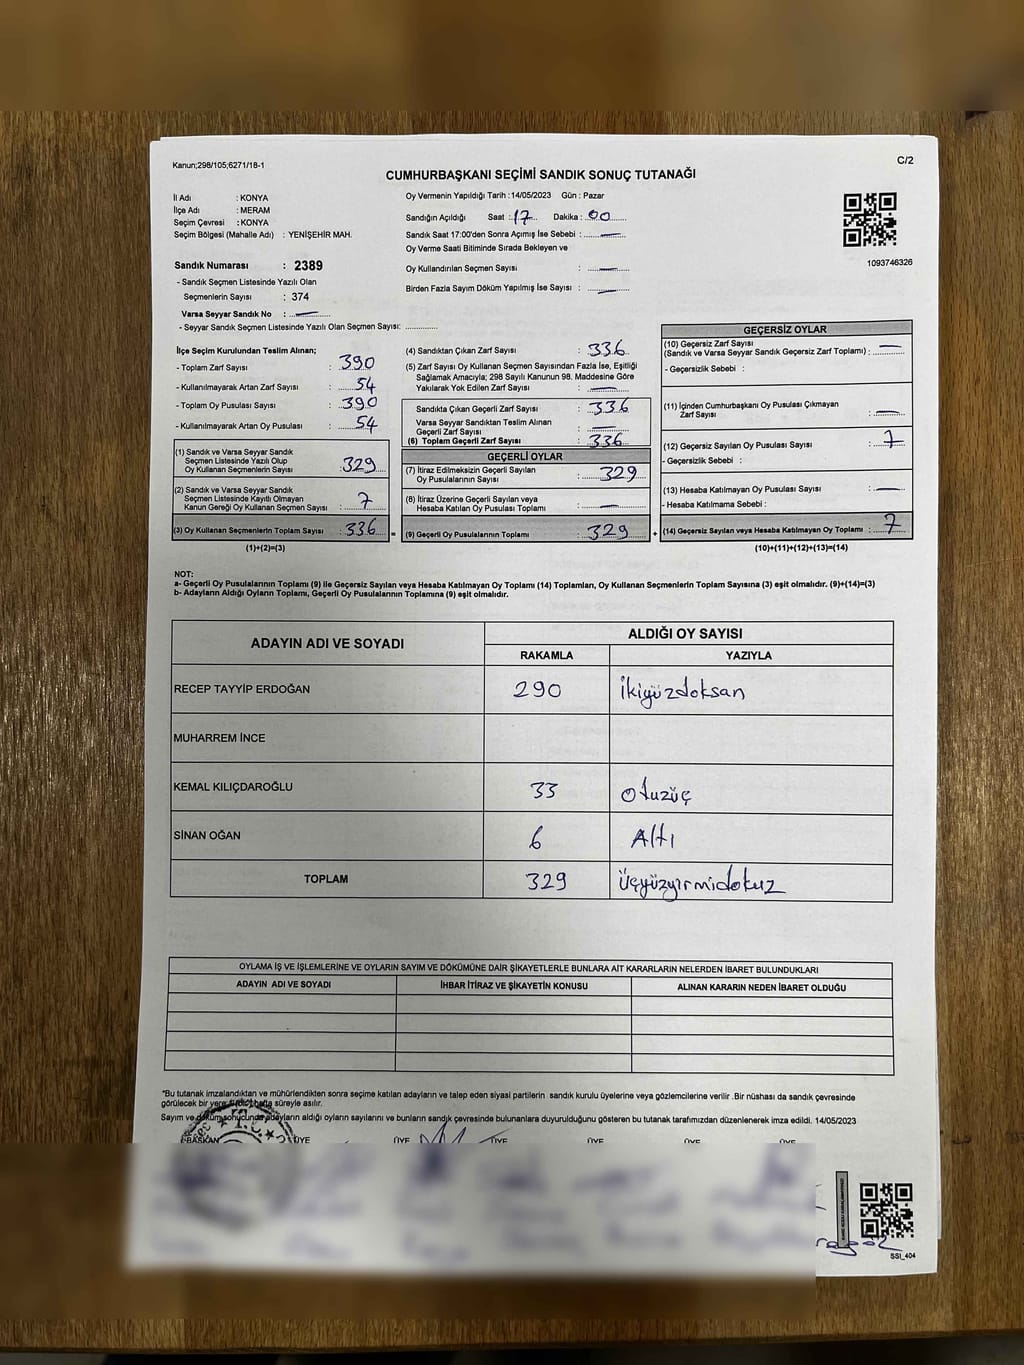 Kanun;298/105;6271/18-1
C/2
CUMHURBAŞKANI SEÇİMİ SANDIK SONUÇ TUTANAĞI
İl Adı : KONYA
İlçe Adı : MERAM
Seçim Çevresi : KONYA
Seçim Bölgesi (Mahalle Adı) : YENİŞEHİR MAH.
Sandık Numarası : 2389
- Sandık Seçmen Listesinde Yazılı Olan
Seçmenlerin Sayısı : 374
Varsa Seyyar Sandık No : —
- Seyyar Sandık Seçmen Listesinde Yazılı Olan Seçmen Sayısı: ............
Oy Vermenin Yapıldığı Tarih : 14/05/2023 Gün : Pazar
Sandığın Açıldığı Saat : 17 Dakika : 00
Sandık Saat 17:00'den Sonra Açımış İse Sebebi : —
Oy Verme Saati Bitiminde Sırada Bekleyen ve
Oy Kullandırılan Seçmen Sayısı : —
Birden Fazla Sayım Döküm Yapılmış İse Sayısı : —
1093746326
İlçe Seçim Kurulundan Teslim Alınan;
- Toplam Zarf Sayısı : 390
- Kullanılmayarak Artan Zarf Sayısı : 54
- Toplam Oy Pusulası Sayısı : 390
- Kullanılmayarak Artan Oy Pusulası : 54
(1) Sandık ve Varsa Seyyar Sandık
Seçmen Listesinde Yazılı Olup
Oy Kullanan Seçmenlerin Sayısı : 329
(2) Sandık ve Varsa Seyyar Sandık
Seçmen Listesinde Kayıtlı Olmayan
Kanun Gereği Oy Kullanan Seçmen Sayısı : 7
(3) Oy Kullanan Seçmenlerin Toplam Sayısı : 336 =
(1)+(2)=(3)
(4) Sandıktan Çıkan Zarf Sayısı : 336
(5) Zarf Sayısı Oy Kullanan Seçmen Sayısından Fazla İse, Eşitliği
Sağlamak Amacıyla; 298 Sayılı Kanunun 98. Maddesine Göre
Yakılarak Yok Edilen Zarf Sayısı : —
Sandıkta Çıkan Geçerli Zarf Sayısı : 336
Varsa Seyyar Sandıktan Teslim Alınan
Geçerli Zarf Sayısı : —
(6) Toplam Geçerli Zarf Sayısı : 336
GEÇERLİ OYLAR
(7) İtiraz Edilmeksizin Geçerli Sayılan
Oy Pusulalarının Sayısı : 329
(8) İtiraz Üzerine Geçerli Sayılan veya
Hesaba Katılan Oy Pusulası Toplamı : —
(9) Geçerli Oy Pusulalarının Toplamı : 329 +
GEÇERSİZ OYLAR
(10) Geçersiz Zarf Sayısı
(Sandık ve Varsa Seyyar Sandık Geçersiz Zarf Toplamı) : —
- Geçersizlik Sebebi :
(11) İçinden Cumhurbaşkanı Oy Pusulası Çıkmayan
Zarf Sayısı : —
(12) Geçersiz Sayılan Oy Pusulası Sayısı : 7
- Geçersizlik Sebebi :
(13) Hesaba Katılmayan Oy Pusulası Sayısı : —
- Hesaba Katılmama Sebebi :
(14) Geçersiz Sayılan veya Hesaba Katılmayan Oy Toplamı : 7
(10)+(11)+(12)+(13)=(14)
NOT:
a- Geçerli Oy Pusulalarının Toplamı (9) ile Geçersiz Sayılan veya Hesaba Katılmayan Oy Toplamı (14) Toplamları, Oy Kullanan Seçmenlerin Toplam Sayısına (3) eşit olmalıdır. (9)+(14)=(3)
b- Adayların Aldığı Oyların Toplamı, Geçerli Oy Pusulalarının Toplamına (9) eşit olmalıdır.
ADAYIN ADI VE SOYADI
ALDIĞI OY SAYISI
RAKAMLA YAZIYLA
RECEP TAYYİP ERDOĞAN 290 İkiyüzdoksan
MUHARREM İNCE
KEMAL KILIÇDAROĞLU 33 otuzüç
SİNAN OĞAN 6 Altı
TOPLAM 329 Üçyüzyirmidokuz
OYLAMA İŞ VE İŞLEMLERİNE VE OYLARIN SAYIM VE DÖKÜMÜNE DAİR ŞİKAYETLERLE BUNLARA AİT KARARLARIN NELERDEN İBARET BULUNDUKLARI
ADAYIN ADI VE SOYADI İHBAR İTİRAZ VE ŞİKAYETİN KONUSU ALINAN KARARIN NEDEN İBARET OLDUĞU
*Bu tutanak imzalandıktan ve mühürlendikten sonra seçime katılan adayların ve talep eden siyasi partilerin sandık kurulu üyelerine veya gözlemcilerine verilir .Bir nüshası da sandık çevresinde
görülecek bir yere hafta süreyle asılır.
Sayım ve döküm sonucunda adayların aldığı oyların sayılarını ve bunların sandık çevresinde bulunanlara duyurulduğunu gösteren bu tutanak tarafımızdan düzenlenerek imza edildi. 14/05/2023
BAŞKAN ÜYE ÜYE ÜYE ÜYE ÜYE ÜYE
T.C.
SSI_404